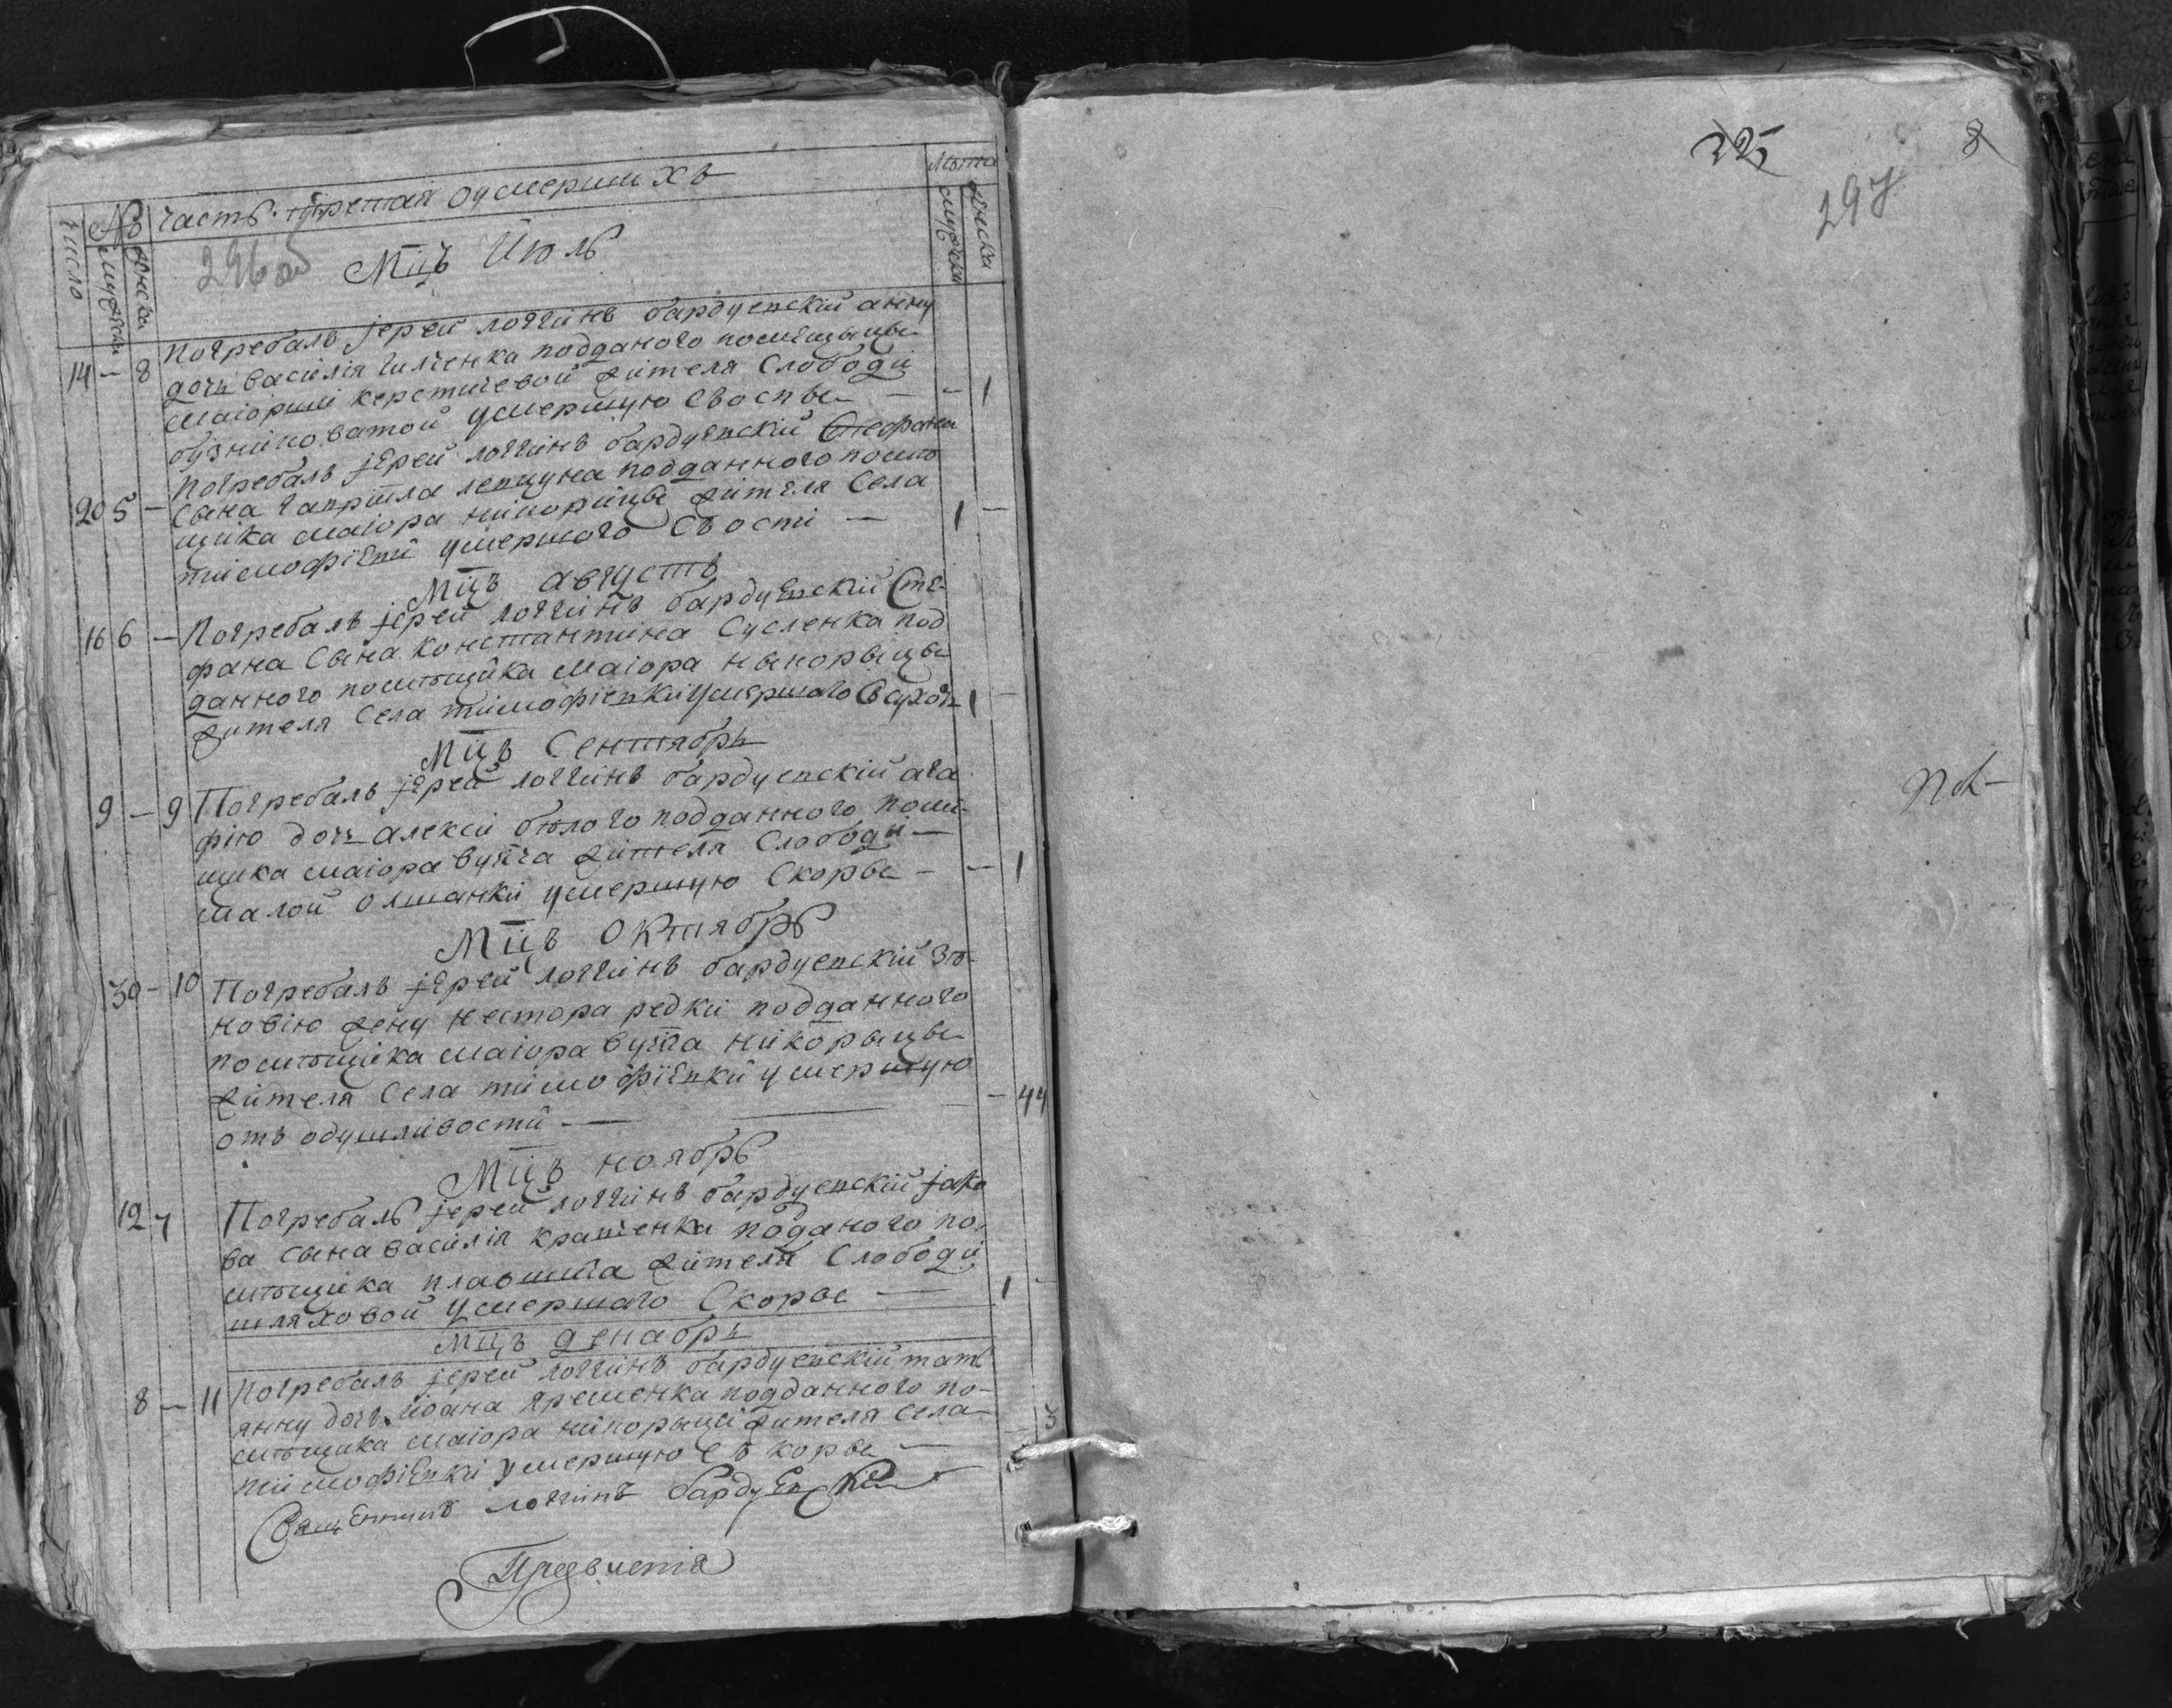 Число № мужска женска часть третая о умершихъ Лѣта мужска женска
296 об
Мцъ Июль
14 - 8 Погребалъ јерей логгинъ бардуевскій анну
дочь василія Чилченка подданого помѣщыцы
маіорши керстичевой жителя Слободи
бузниковатой умершую Звоспы - - 1
20 5 - Погребалъ јерей логгинъ бардуевскій Стефана
сына гаврила подданного помѣ
щика маіора никорици жителя Села
тимофіевки умершого Свости 1 -
Мцъ августъ
16 6 - Погребалъ јерей логгинъ бардуевскій Сте-
фана Сына Константина Сусленка под
данного помѣщика маіора никорыцы
жителя Села тимофіевки умершаго 1 -
Мцъ Сентябрь
9 - 9 Погребалъ јерей логгинъ бардуевскій ага
фію дочь алексіи бѣлого подданного поми-
щика маіора вуича жителя Слободи
малой олшанки умершую Скорбы - - 1
Мцъ Октябрь
30 - 10 Погребалъ јерей логгинъ бардуевскій Зѣ-
новію жену нестора редки подданного
помѣщика маіора вуича никорыцы
жителя Села тимофіевки умершую
отъ одушливости - - 44
Мцъ ноябрь
12 7 Погребалъ јерей логгинъ бардуевскій јако
ва сына василія поданого по-
мѣщика плавшита жителя Слободи
шляховой умершаго Скорбы 1 -
Мцъ декабрь
8 - 11 Погребалъ јерей логгинъ бардуевскій тать
янну дочь иоана яременка подданного по-
мѣщика маіора никорыци жителя села - 3
тимофіевки умершую Съ корбы
Священникъ логгинъ бардуевскій
225
8
297